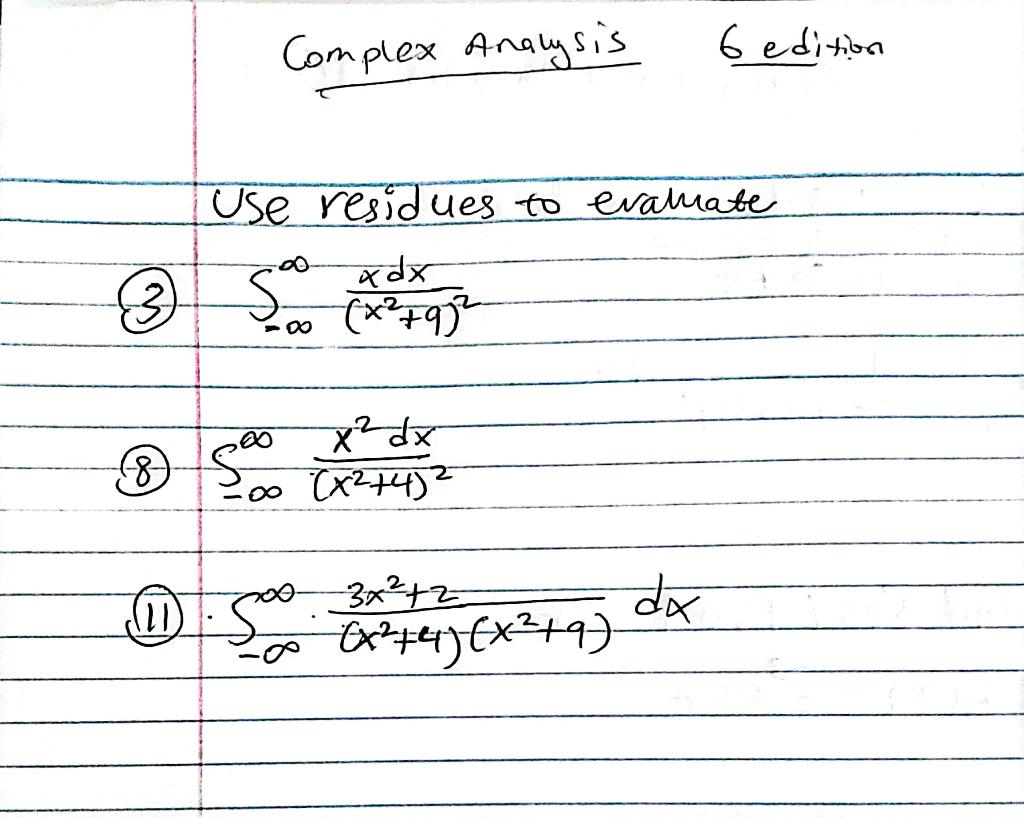 Complex Analysis 6 edition
Use residues to evaluate
③ ∫_{-∞}^{∞} x dx / (x²+9)²
⑧ ∫_{-∞}^{∞} x² dx / (x²+4)²
⑪ · ∫_{-∞}^{∞} · 3x²+2 / (x²+4)(x²+9) dx